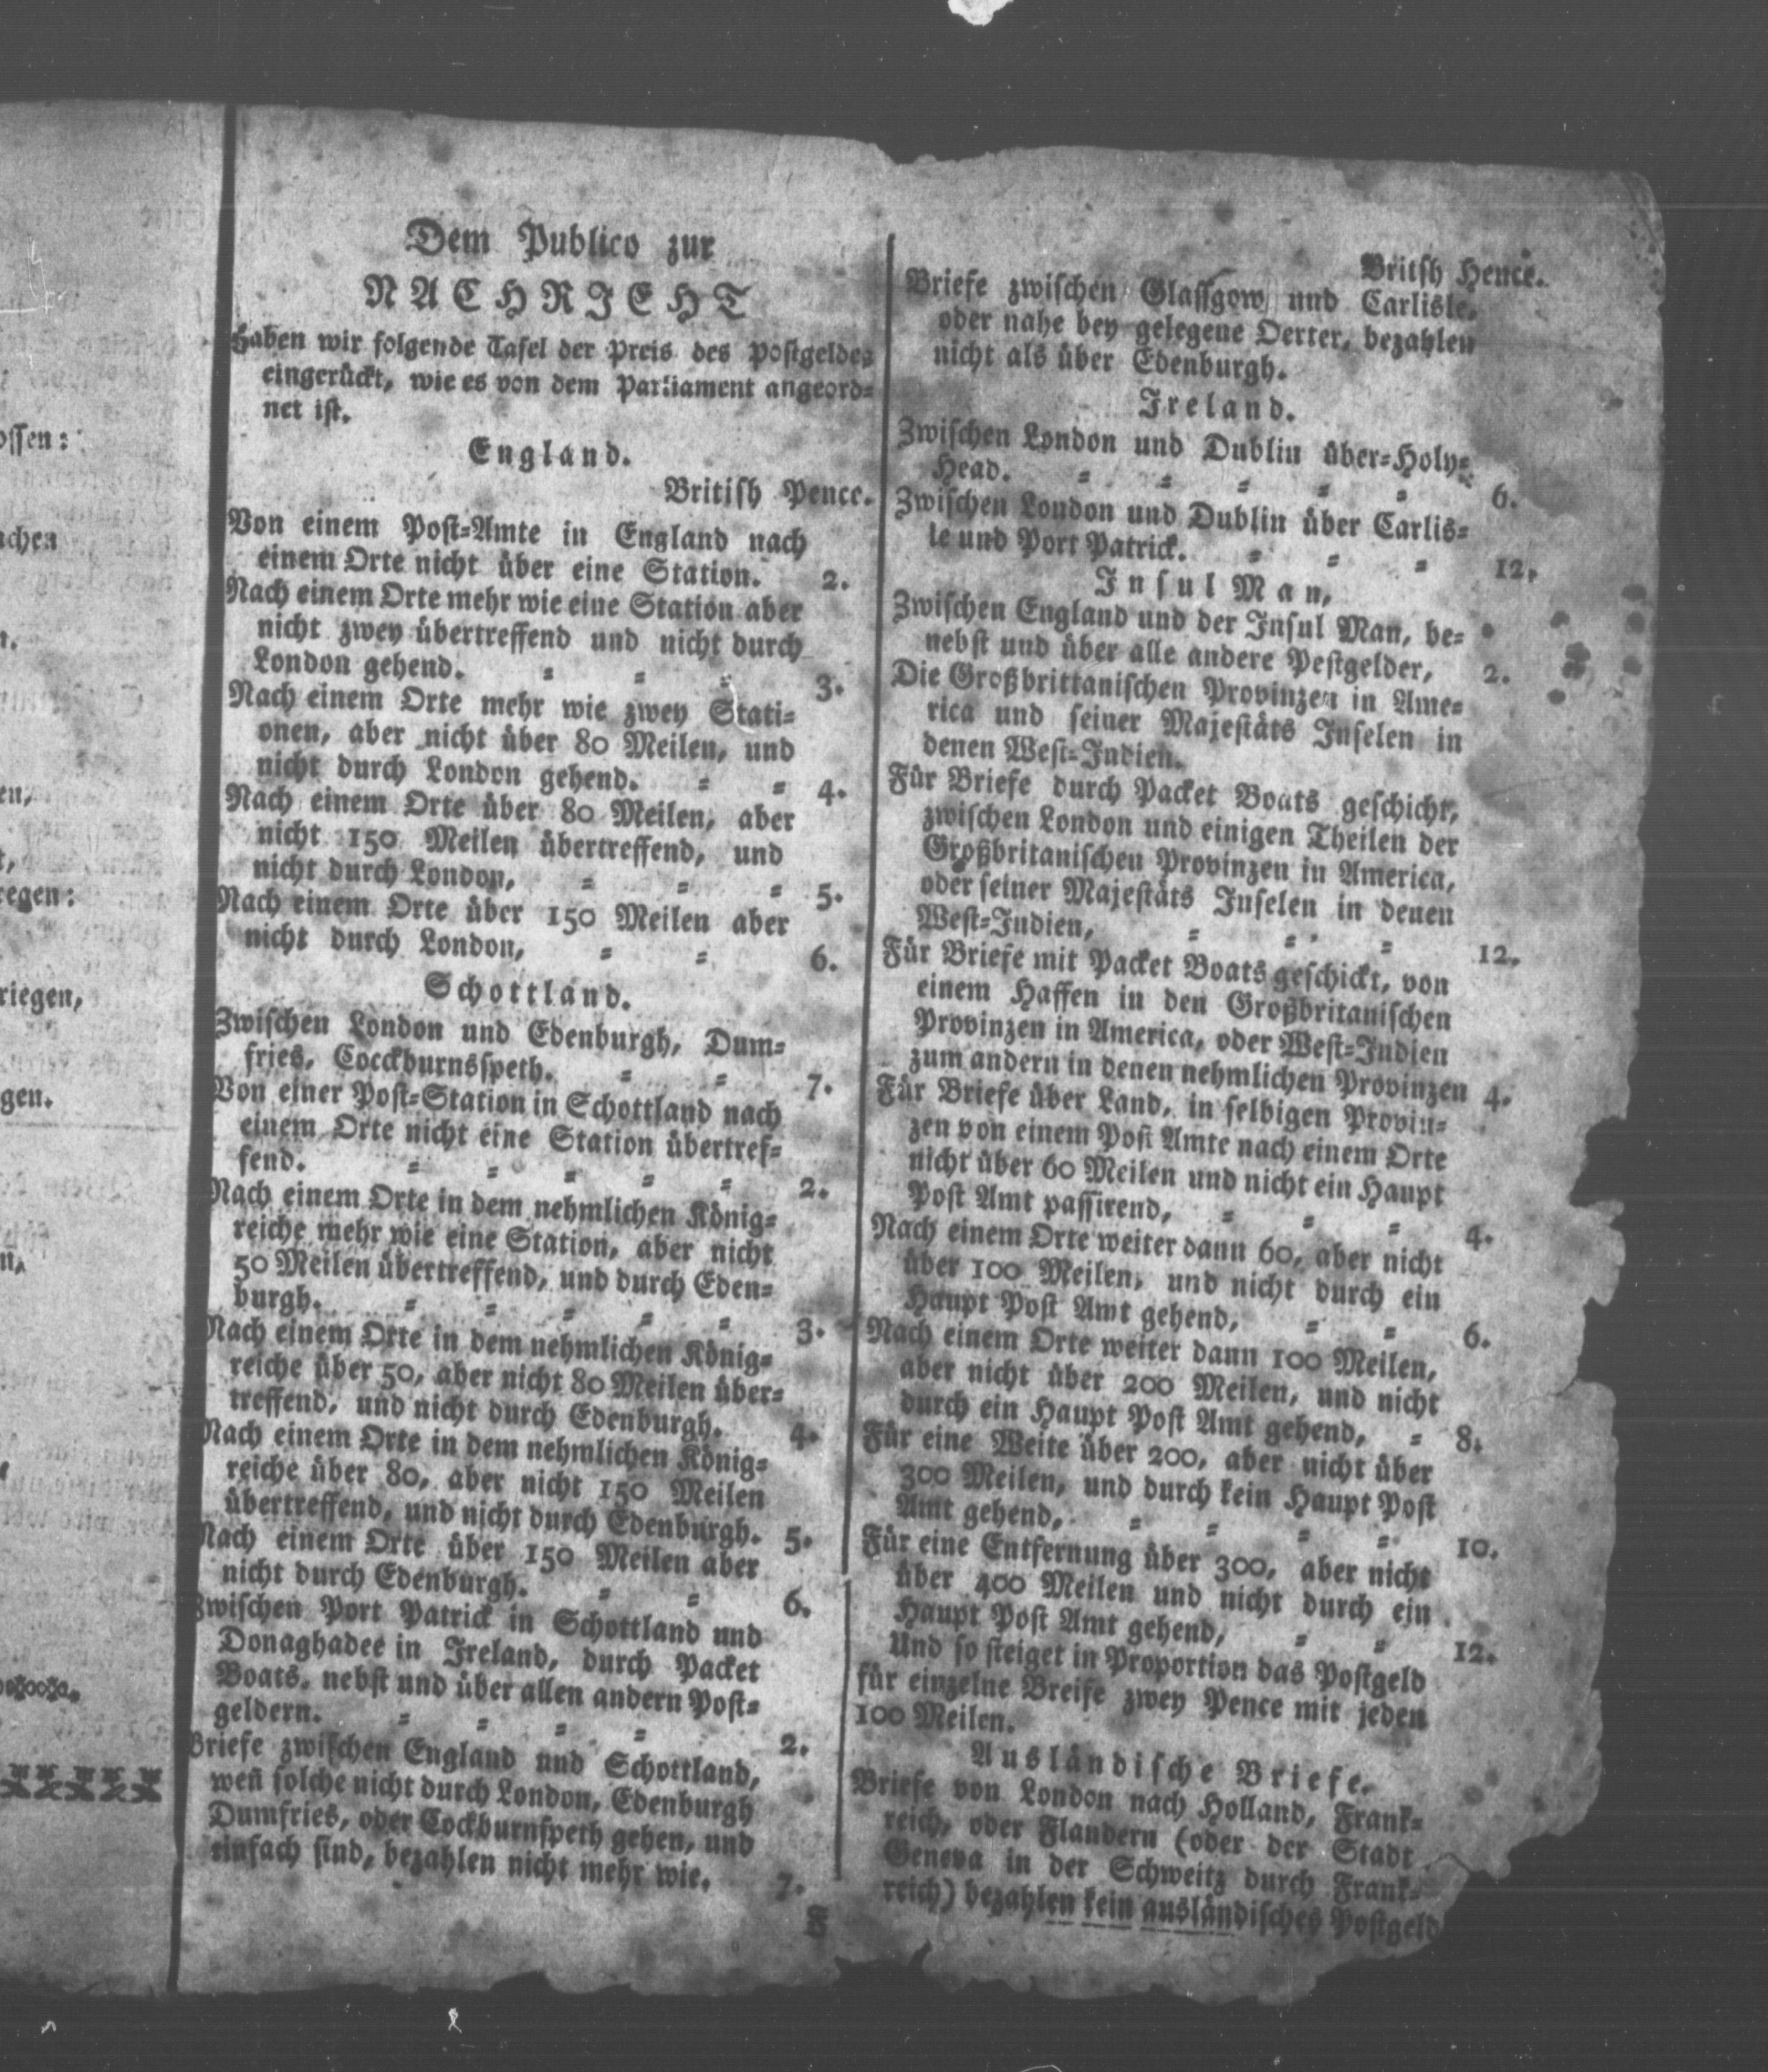 ossen:
achen
n.
en,
t,
regen:
riegen,
gen.
n,
Dem Publico zur
NACHRICHT
Haben wir folgende Tafel der Preis des Postgeldes
eingerückt, wie es von dem Parliament angeord=
net ist.
England.
British Pence.
Von einem Post=Amte in England nach
einem Orte nicht über eine Station. 2.
Nach einem Orte mehr wie eine Station aber
nicht zwey übertreffend und nicht durch
London gehend. = = = 3.
Nach einem Orte mehr wie zwey Stati=
onen, aber nicht über 80 Meilen, und
nicht durch London gehend. = = 4.
Nach einem Orte über 80 Meilen, aber
nicht 150 Meilen übertreffend, und
nicht durch London, = = = 5.
Nach einem Orte über 150 Meilen aber
nicht durch London, = = 6.
Schottland.
Zwischen London und Edenburgh, Dum=
fries, Cocckburnsspeth. = = 7.
Von einer Post=Station in Schottland nach
einem Orte nicht eine Station übertref=
fend. = = = = = 2.
Nach einem Orte in dem nehmlichen König=
reiche mehr wie eine Station, aber nicht
50 Meilen übertreffend, und durch Eden=
burgh. = = = = = 3.
Nach einem Orte in dem nehmlichen König=
reiche über 50, aber nicht 80 Meilen über=
treffend, und nicht durch Edenburgh. 4.
Nach einem Orte in dem nehmlichen König=
reiche über 80, aber nicht 150 Meilen
übertreffend, und nicht durch Edenburgh. 5.
Nach einem Orte über 150 Meilen aber
nicht durch Edenburgh. = = 6.
Zwischen Port Patrick in Schottland und
Donaghadee in Ireland, durch Packet
Boats, nebst und über allen andern Post=
geldern. = = = = 2.
Briefe zwischen England und Schottland,
wen̄ solche nicht durch London, Edenburgh
Dumfries, oder Cockburnspeth gehen, und
einfach sind, bezahlen nicht mehr wie. 7.
Britsh Hence.
Briefe zwischen Glassgow und Carlisle,
oder nahe bey gelegene Oerter, bezahlen
nicht als über Edenburgh.
Ireland.
Zwischen London und Dublin über=Holy=
Head. = = = = = 6.
Zwischen London und Dublin über Carlis=
le und Port Patrick. = = = 12.
Insul Man,
Zwischen England und der Insul Man, be=
nebst und über alle andere Pestgelder, 2.
Die Großbrittanischen Provinzen in Ame=
rica und seiner Majestäts Inselen in
denen West=Indien.
Für Briefe durch Packet Boats geschicht,
zwischen London und einigen Theilen der
Großbritanischen Provinzen in America,
oder seiner Majestäts Inselen in denen
West=Indien, = = = 12.
Für Briefe mit Packet Boats geschickt, von
einem Haffen in den Großbritanischen
Provinzen in America, oder West=Indien
zum andern in denen nehmlichen Provinzen 4.
Für Briefe über Land, in selbigen Provin=
zen von einem Post Amte nach einem Orte
nicht über 60 Meilen und nicht ein Haupt
Post Amt passirend, = = = 4.
Nach einem Orte weiter dann 60, aber nicht
über 100 Meilen, und nicht durch ein
Haupt Post Amt gehend, = = 6.
Nach einem Orte weiter dann 100 Meilen,
aber nicht über 200 Meilen, und nicht
durch ein Haupt Post Amt gehend, = 8.
Für eine Weite über 200, aber nicht über
300 Meilen, und durch kein Haupt Post
Amt gehend, = = = = 10.
Für eine Entfernung über 300, aber nicht
über 400 Meilen und nicht durch ein
Haupt Post Amt gehend, = = 12.
Und so steiget in Proportion das Postgeld
für einzelne Breife zwey Pence mit jeden
100 Meilen.
Ausländische Briefe.
Briefe von London nach Holland, Frank=
reich, oder Flandern (oder der Stadt
Geneva in der Schweitz durch Frank=
reich) bezahlen kein ausländisches Postgeld